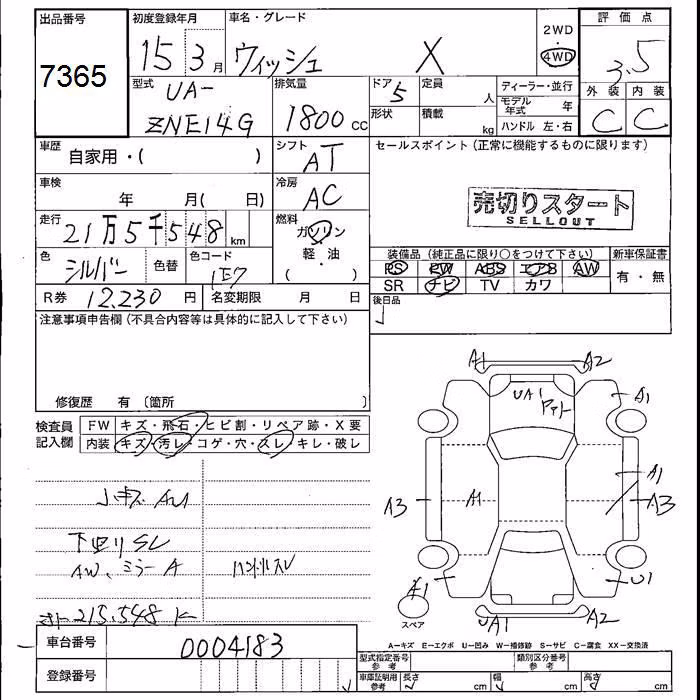 出品番号
7365
初度登録年月
15 3月
車名・グレード
ウィッシュ X
2WD
4WD
評価点
3.5
外装 内装
C C
型式
UA-
ZNE14G
排気量
1800 cc
ドア 5
形状
定員 人
積載 kg
ディーラー・並行
モデル年式 年
ハンドル 左・右
車歴 自家用・( )
シフト AT
セールスポイント(正常に機能するものに限ります)
売切りスタート
SELLOUT
車検 年 月( 日)
冷房 AC
走行 21万5千548 km
燃料
ガソリン
軽・油
( )
色 シルバー 色替 色コード 1E7
装備品(純正品に限り○をつけて下さい) 新車保証書
PS PW ABS エアB AW
SR ナビ TV カワ
有・無
R券 12,230 円 名変期限 月 日
後日品
注意事項申告欄(不具合内容等は具体的に記入して下さい)
修復歴 有 〔箇所 〕
検査員記入欄
FW キズ・飛石・ヒビ割・リペア跡・X要
内装 キズ・汚レ・コゲ・穴・スレ・キレ・破レ
小キズ
下回りSし
AW、ミラーA ハンドルスレ
215,548 K
A1 A2
UA1
A1
A3 A1 A1 A3
A1 U1
UA1 A2
スペア
A-キズ E-エクボ U-凹み W-補修跡 S-サビ C-腐食 XX-交換済
車台番号 0004183
登録番号
型式指定番号 参考
類別区分番号 参考
車庫証明用 参考 長さ cm 幅 cm 高さ cm